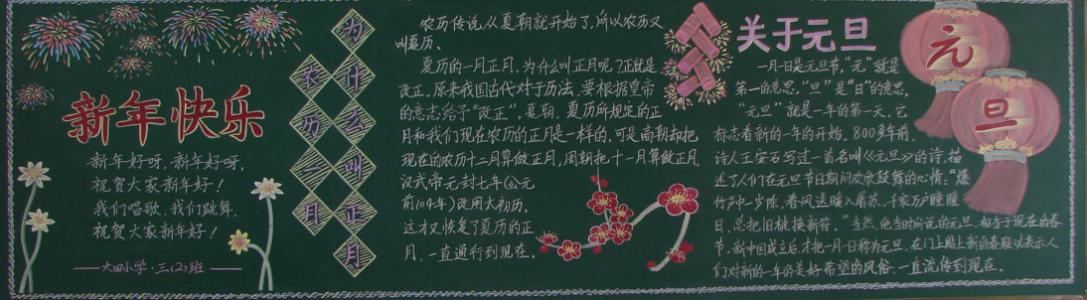 新年快乐
新年好呀,新年好呀,
祝贺大家新年好!
我们唱歌,我们跳舞,
祝贺大家新年好!
大田小学·三(2)班
农历一月
为什么叫正月
农历传说,从夏朝就开始了,所以农历又
叫夏历。
夏历的一月正月,为什么叫正月呢?正就是
改正。原来我国古代对于历法,要根据皇帝
的意志给予“改正”。夏朝,夏历所规定的正
月和我们现在农历的正月是一样的,可是商朝却把
现在的农历十二月算做正月,周朝把十一月算做正月
汉武帝元封七年(公元
前104年)改用太初历,
这才又恢复了夏历的正
月,一直通行到现在。
关于元旦
一月一日是元旦节,“元”就是
第一的意思,“旦”是“日”的意思,
“元旦”就是一年的第一天。它
标志着新的一年的开始。800多年前,
诗人王安石写过一首名叫《元旦》的诗,描
述了人们在元旦节日期间欢欣鼓舞的心情:“爆
竹声中一岁除,春风送暖入屠苏。千家万户瞳瞳
日,总把旧桃换新符。”当然,他当时所说的元旦,相当于现在的春
节。新中国成立后才把一月一日称为元旦。在门上贴上新的春联以表示人
们对新的一年的美好希望的风俗,一直流传到现在。
元
旦